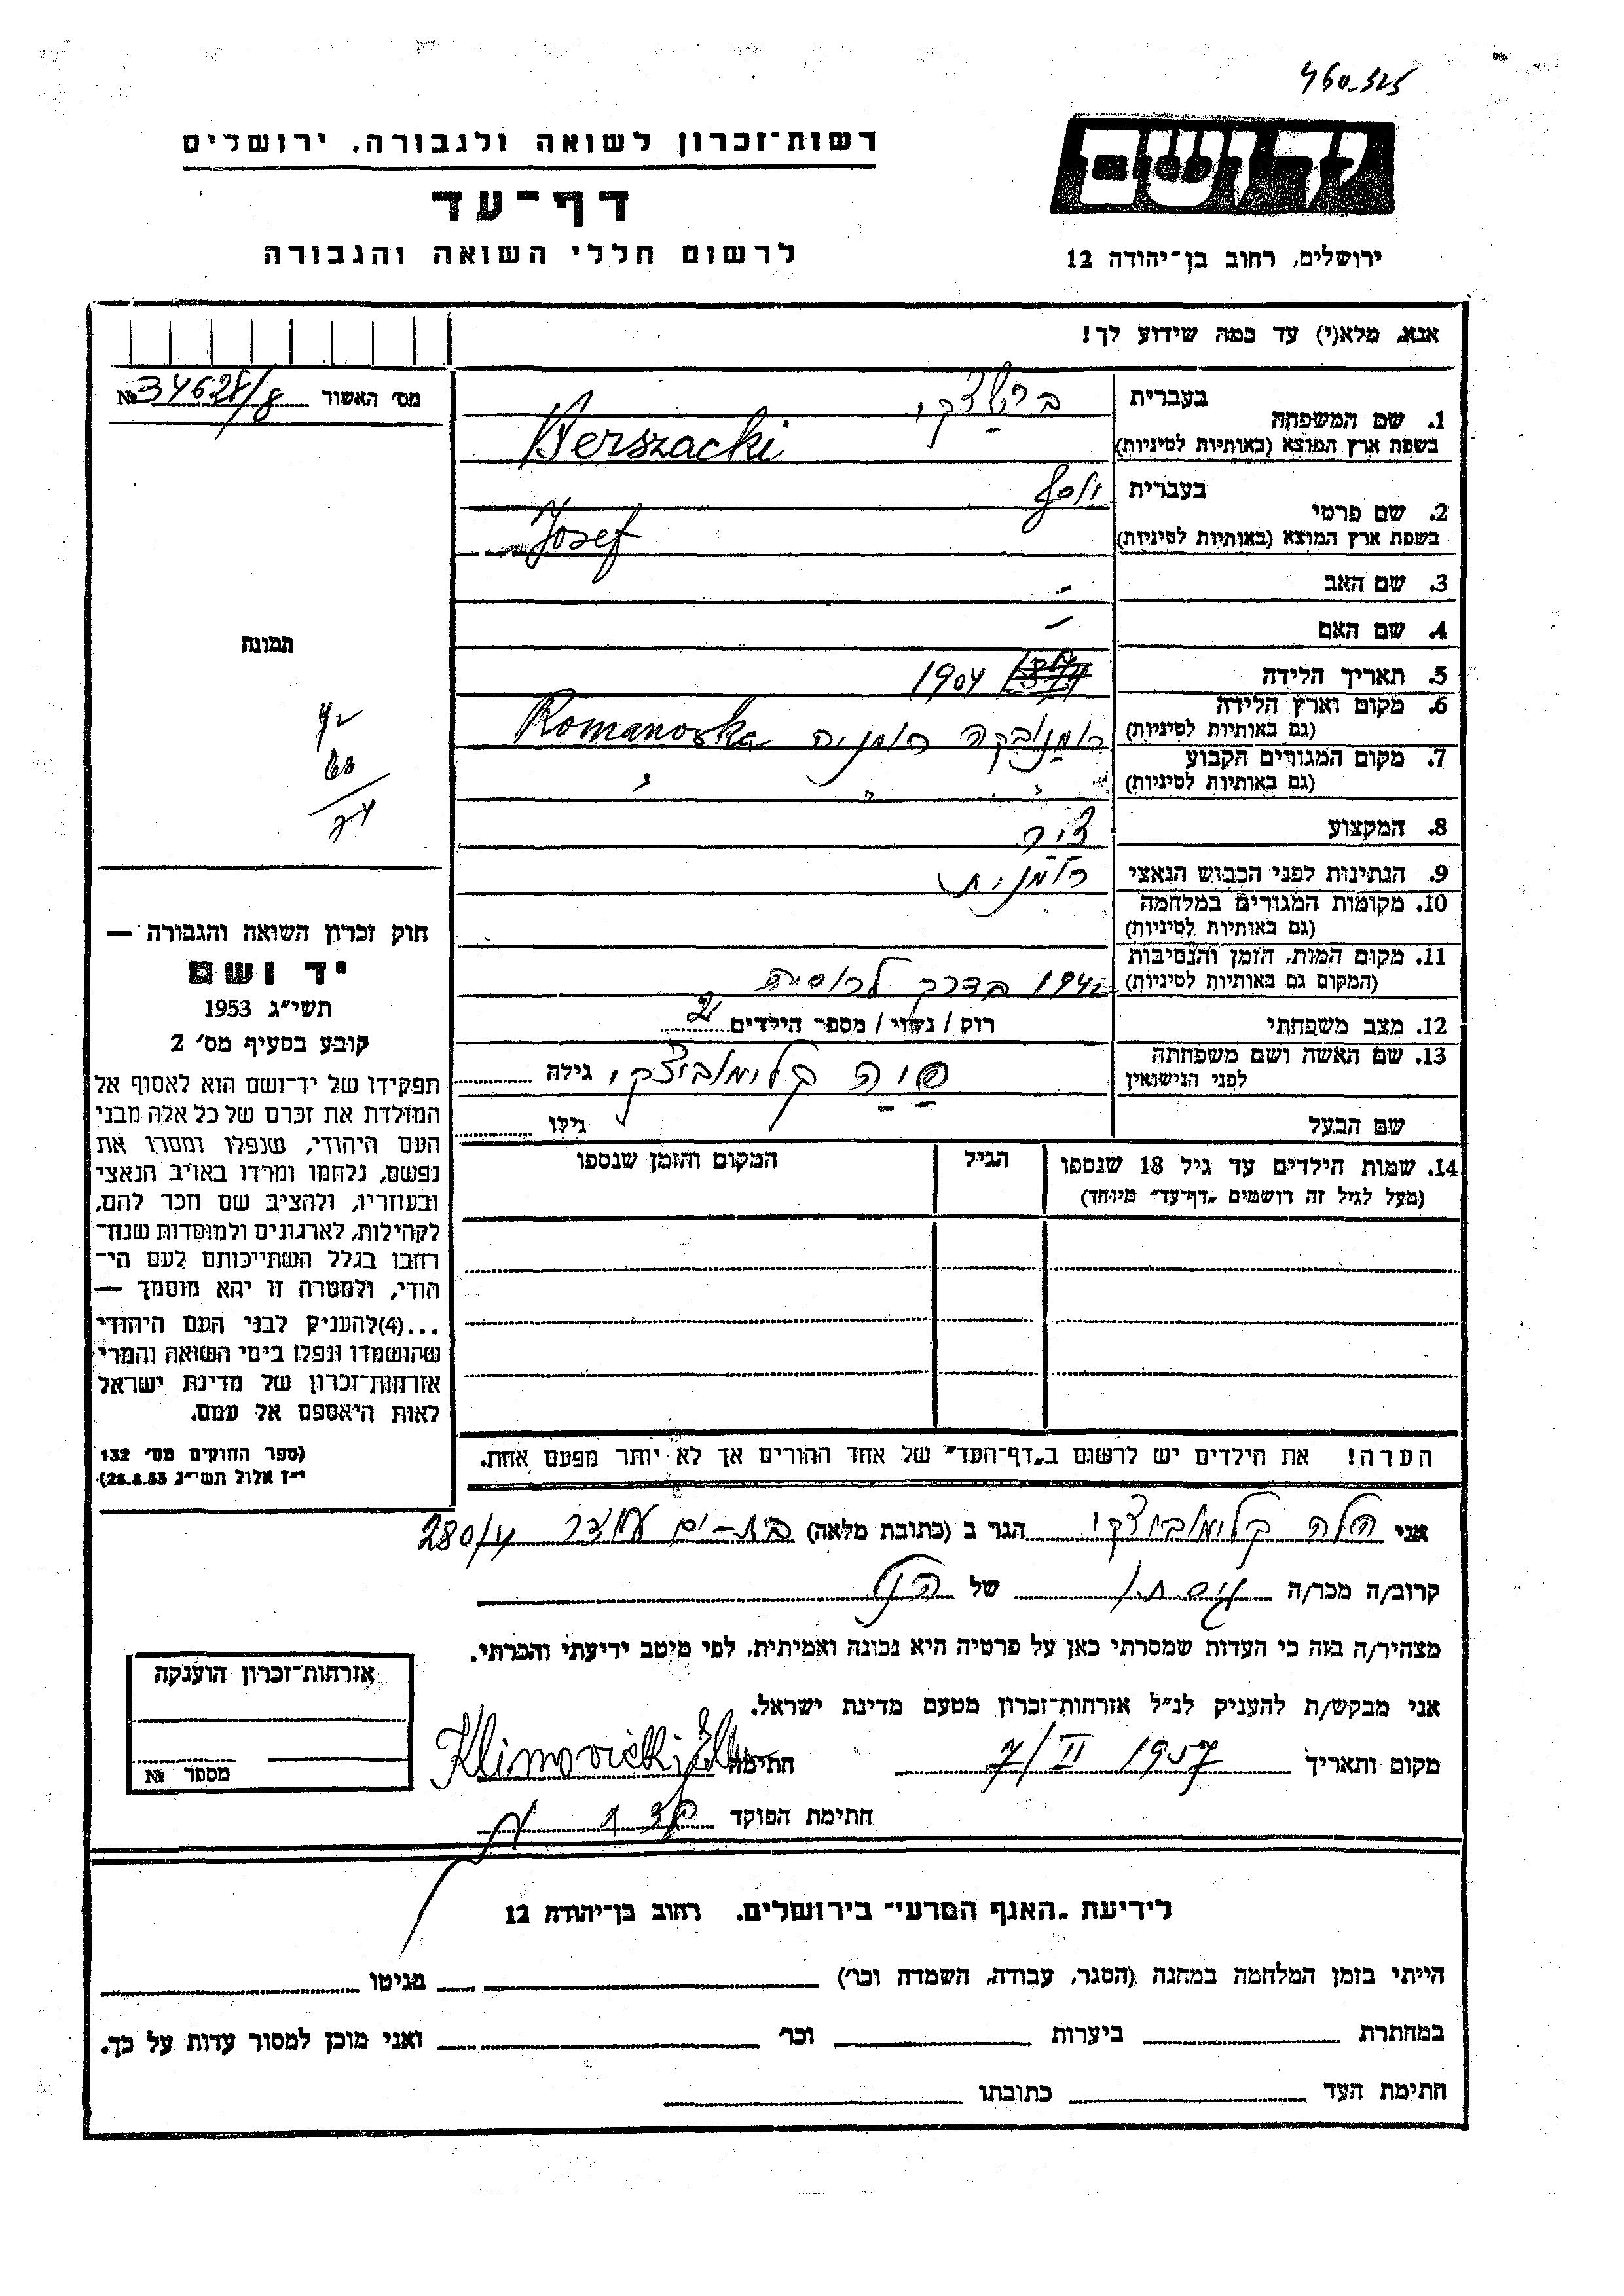 460-325
יד ושם
רשות־זכרון לשואה ולגבורה, ירושלים
דף־עד
לרשום חללי השואה והגבורה
ירושלים, רחוב בן־יהודה 12
אנא, מלא(י) עד כמה שידוע לך!
מס׳ האשור № 34628/8
בעברית
1. שם המשפחה ברשצקי
בשפת ארץ המוצא (באותיות לטיניות) Berszacki
בעברית יוסף
2. שם פרטי
בשפת ארץ המוצא (באותיות לטיניות) Josef
3. שם האב -
4. שם האם -
תמונה
5. תאריך הלידה 1904
6. מקום וארץ הלידה
(גם באותיות לטיניות) רומנובקה רומניה Romanovka
7. מקום המגורים הקבוע
(גם באותיות לטיניות) " " "
8. המקצוע
9. הנתינות לפני הכבוש הנאצי רומנית
10. מקומות המגורים במלחמה
(גם באותיות לטיניות)
11. מקום המות, הזמן והנסיבות
(המקום גם באותיות לטיניות) בדרך לרוסיה
12. מצב משפחתי רווק / נשוי / מספר הילדים 2
13. שם האשה ושם משפחתה
לפני הנישואין קלימוביצקי גילה
שם הבעל גילו
14. שמות הילדים עד גיל 18 שנספו הגיל המקום והזמן שנספו
(מעל לגיל זה רושמים „דף־עד״ מיוחד)
הערה! את הילדים יש לרשום ב„דף־העד״ של אחד ההורים אך לא יותר מפעם אחת.
חוק זכרון השואה והגבורה —
יד ושם
תשי״ג 1953
קובע בסעיף מס׳ 2
תפקידו של יד־ושם הוא לאסוף אל
המולדת את זכרם של כל אלה מבני
העם היהודי, שנפלו ומסרו את
נפשם, נלחמו ומרדו באויב הנאצי
ובעוזריו, ולהציב שם וזכר להם,
לקהילות, לארגונים ולמוסדות שנח־
רבו בגלל השתייכותם לעם הי־
הודי, ולמטרה זו יהא מוסמך —
...(4)להעניק לבני העם היהודי
שהושמדו ונפלו בימי השואה והמרי
אזרחות־זכרון של מדינת ישראל
לאות היאספם אל עמם.
(ספר החוקים מס׳ 132
י״ז אלול תשי״ג 28.8.53)
אני הלה קלימוביצקי הגר ב (כתובת מלאה) בת-ים עמידר 280/4
קרוב/ה מכר/ה גיסתו של הנ״ל
מצהיר/ה בזה כי העדות שמסרתי כאן על פרטיה היא נכונה ואמיתית, לפי מיטב ידיעתי והכרתי.
אני מבקש/ת להעניק לנ״ל אזרחות־זכרון מטעם מדינת ישראל.
מקום ותאריך 7/II 1957 חתימה Klimovicki
חתימת הפוקד
אזרחות־זכרון הוענקה
מספר №
לידיעת „האגף המדעי״ בירושלים, רחוב בן־יהודה 12
הייתי בזמן המלחמה במחנה (הסגר, עבודה, השמדה וכו׳) בגיטו
במחתרת ביערות וכו׳ ואני מוכן למסור עדות על כך.
חתימת העד כתובתו